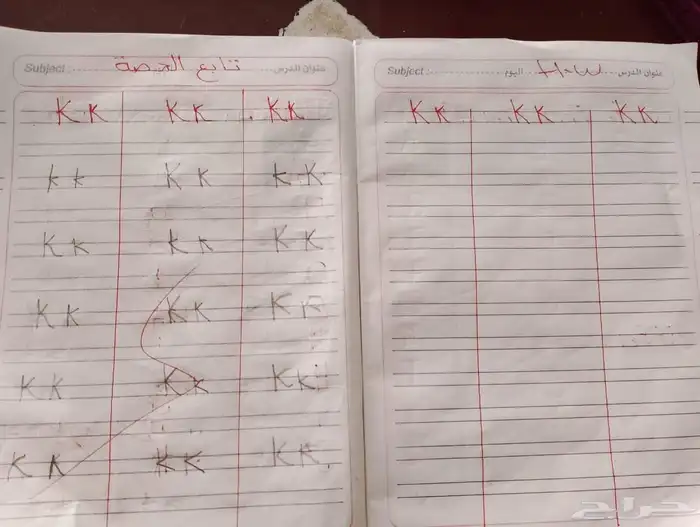 Subject : تابع الحصة عنوان الدرس
K K K K K K
K K K K K K
K K K K K K
K K K K K K
K K K K K K
K K K K K K
Subject : اليوم عنوان الدرس
K K K K K K
حراج